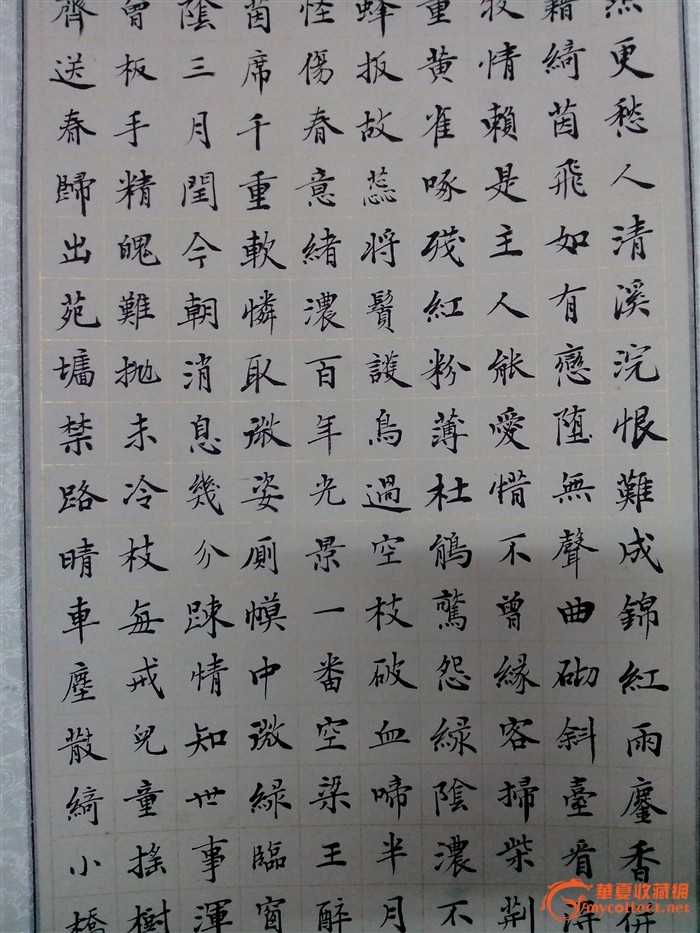 更愁人清溪浣恨難成錦紅雨麈香併
藉綺茵飛如有戀墮無聲曲砌斜臺看
情賴是主人能愛惜不曾緣客掃柴荆
重黄雀啄殘紅粉薄杜鵑驚怨緑陰濃不
蜂扳故蕊將鬚護鳥過空枝破血啼半月
怪傷春意緒濃百年光景一番空梁王醉
茵席千重軟憐取微姿厠幙中微緑臨窗
陰三月閏今朝消息幾分踈情知世事渾
曾板手精魄難抛未冷枝每戒兒童摇樹
齊送春歸出苑墻禁路晴車塵散綺小橋
華夏收藏網
mycollect.net